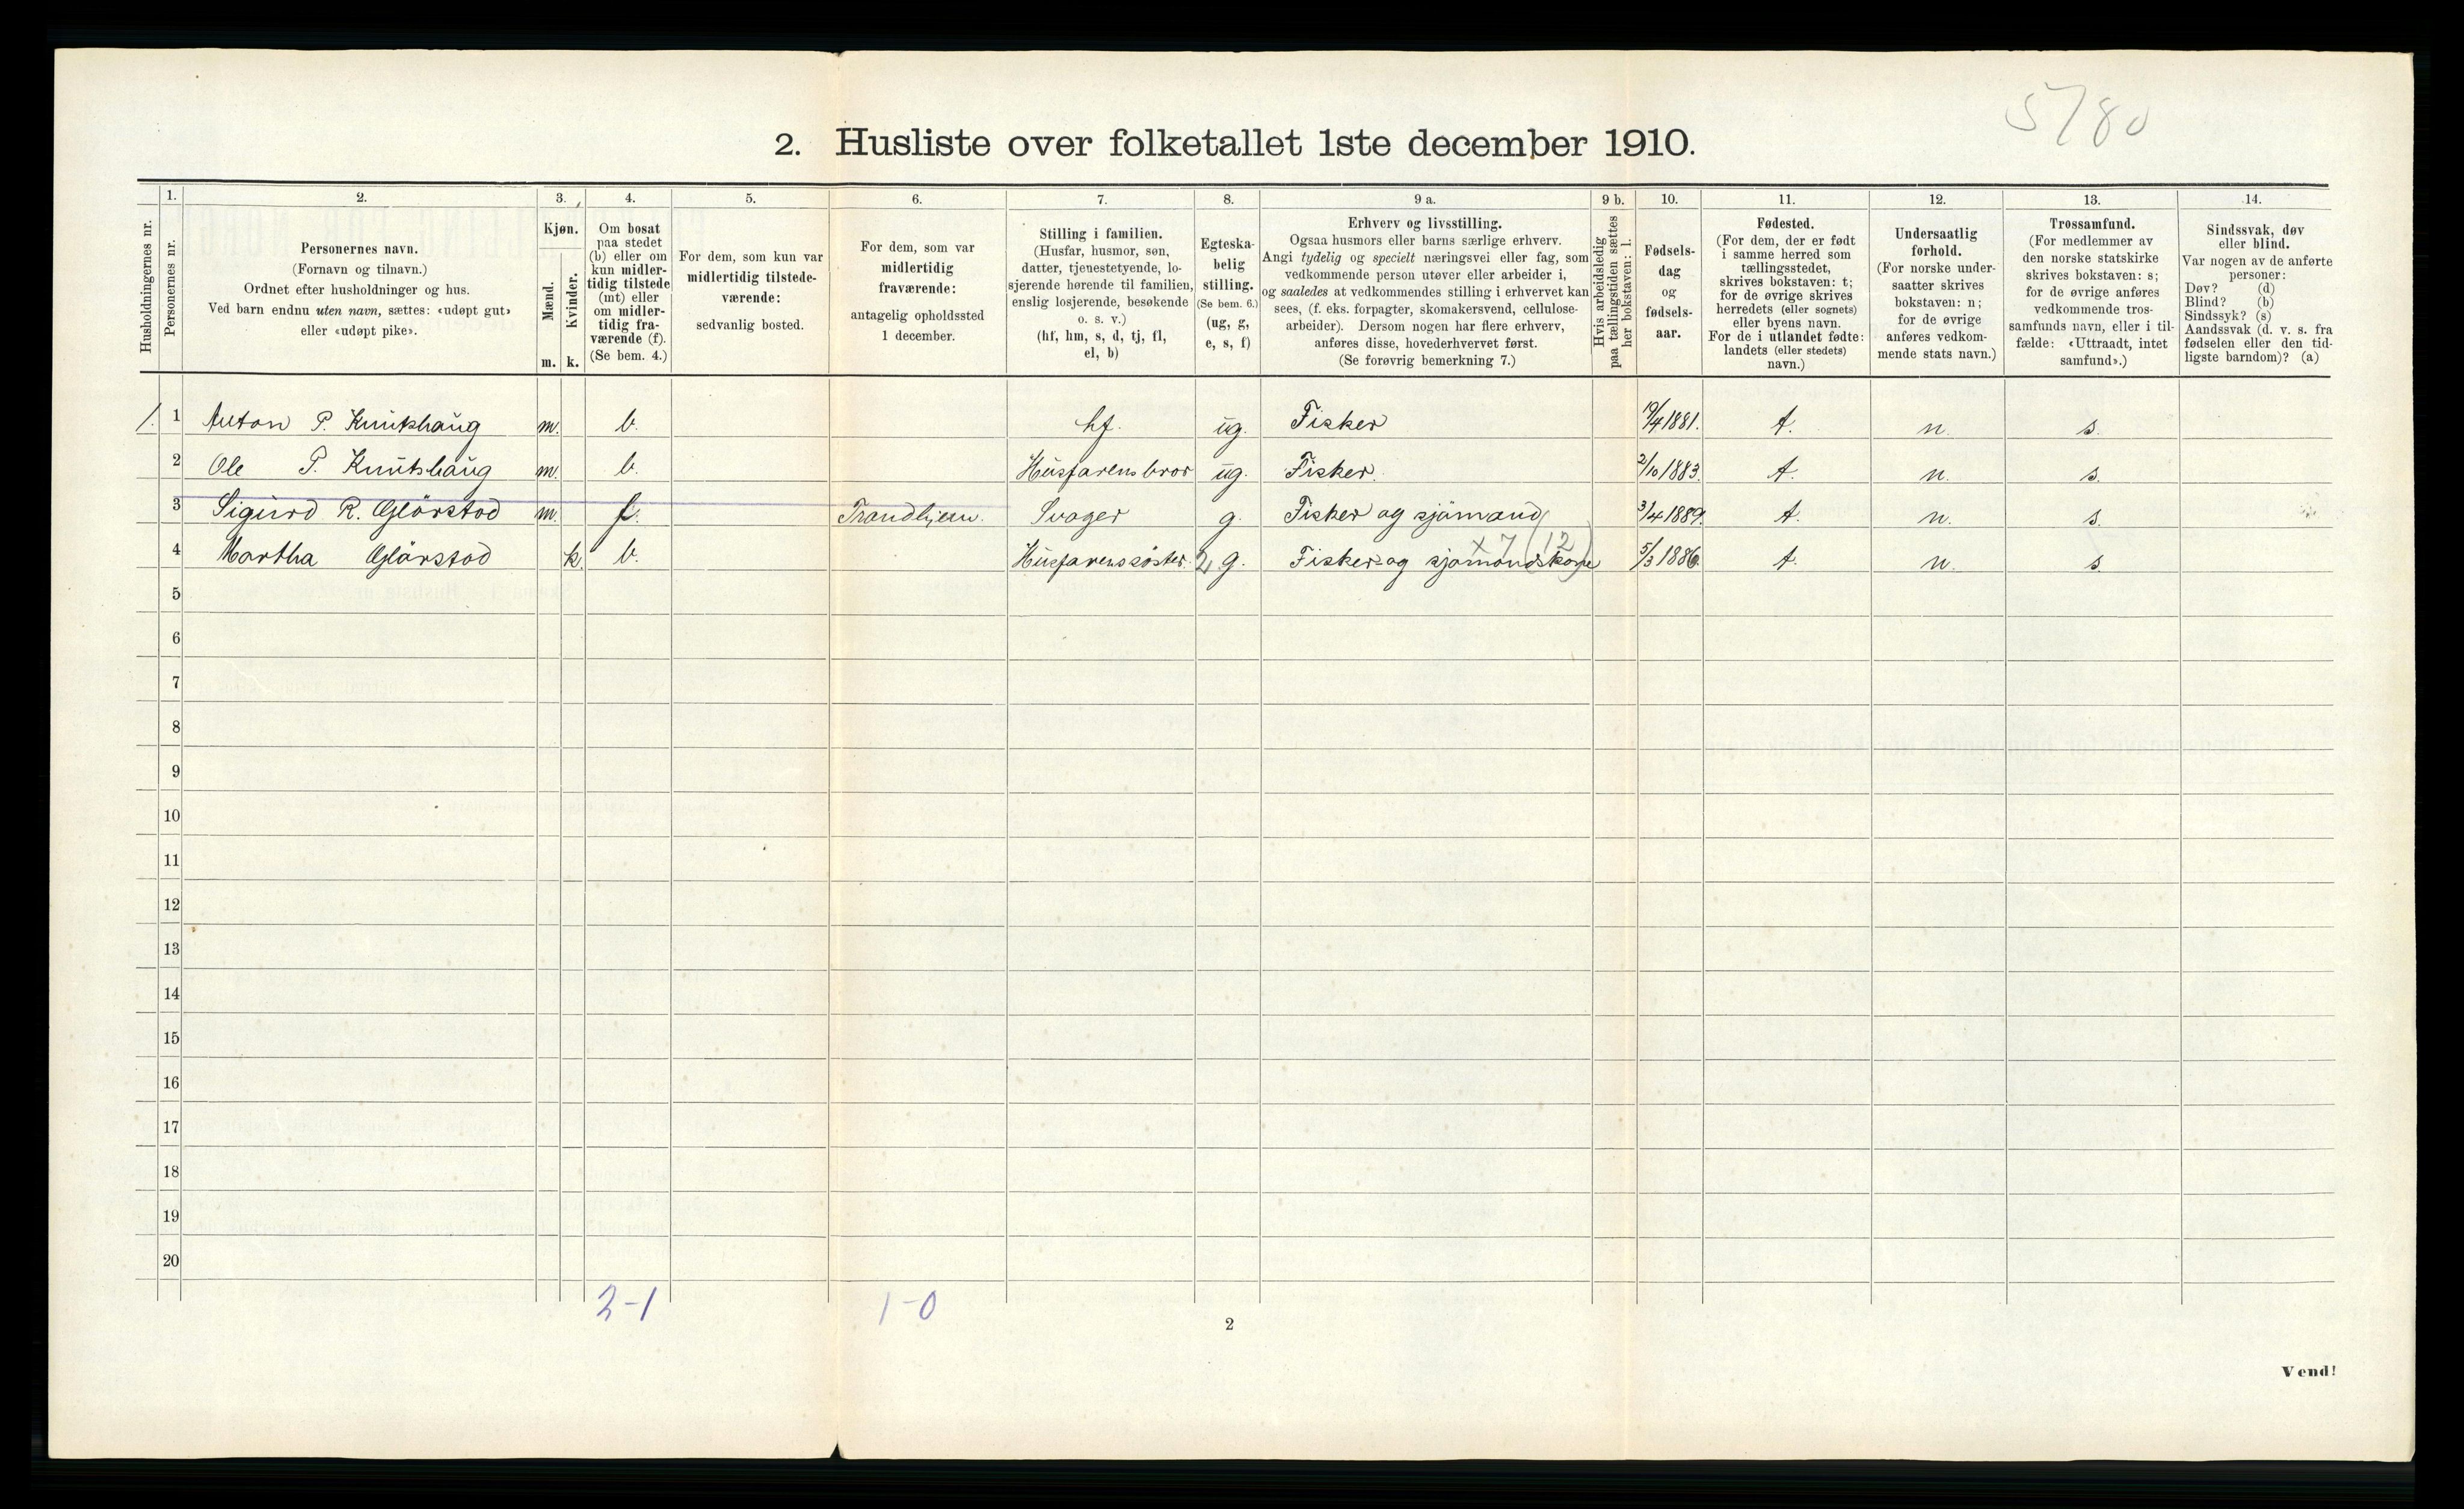 5780
2. Husliste over folketallet 1ste december 1910.
Husholdningernes nr.
1.
Personernes nr.
2.
Personernes navn.
(Fornavn og tilnavn.)
Ordnet efter husholdninger og hus.
Ved barn endnu uten navn, sættes: «udøpt gut»
eller «udøpt pike».
3.
Kjøn.
Mænd.
m.
Kvinder.
k.
4.
Om bosat
paa stedet
(b) eller om
kun midler-
tidig tilstede
(mt) eller
om midler-
tidig fra-
værende (f).
(Se bem. 4.)
5.
For dem, som kun var
midlertidig tilstede-
værende:
sedvanlig bosted.
6.
For dem, som var
midlertidig
fraværende:
antagelig opholdssted
1 december.
7.
Stilling i familien.
(Husfar, husmor, søn,
datter, tjenestetyende, lo-
sjerende hørende til familien,
enslig losjerende, besøkende
o. s. v.)
(hf, hm, s, d, tj, fl,
el, b)
8.
Egteska-
belig
stilling.
(Se bem. 6.)
(ug, g,
e, s, f)
9 a.
Erhverv og livsstilling.
Ogsaa husmors eller barns særlige erhverv.
Angi tydelig og specielt næringsvei eller fag, som
vedkommende person utøver eller arbeider i,
og saaledes at vedkommendes stilling i erhvervet kan
sees, (f. eks. forpagter, skomakersvend, cellulose-
arbeider). Dersom nogen har flere erhverv,
anføres disse, hovederhvervet først.
(Se forøvrig bemerkning 7.)
9 b.
Hvis arbeidsledig
paa tællingstiden sættes
her bokstaven: l.
10.
Fødsels-
dag
og
fødsels-
aar.
11.
Fødested.
(For dem, der er født
i samme herred som
tællingsstedet,
skrives bokstaven: t;
for de øvrige skrives
herredets (eller sognets)
eller byens navn.
For de i utlandet fødte:
landets (eller stedets)
navn.)
12.
Undersaatlig
forhold.
(For norske under-
saatter skrives
bokstaven: n;
for de øvrige
anføres vedkom-
mende stats navn.)
13.
Trossamfund.
(For medlemmer av
den norske statskirke
skrives bokstaven: s;
for de øvrige anføres
vedkommende tros-
samfunds navn, eller i til-
fælde: «Uttraadt, intet
samfund».)
14.
Sindssvak, døv
eller blind.
Var nogen av de anførte
personer:
Døv? (d)
Blind? (b)
Sindssyk? (s)
Aandssvak (d. v. s. fra
fødselen eller den tid-
ligste barndom)? (a)
1. 1 Anton P. Knutshaug m. b. hf. ug. Fisker 19/4 1881. t. n. s.
2 Ole P. Knutshaug m. b. Husfarens bror ug. Fisker. 2/10 1883. t. n. s.
3 Sigurd R. Glörstad m. f. Trondhjem. Svoger g. Fisker og sjömand 3/4 1889. t. n. s.
x 7 (12)
4 Martha Glörstad k. b. Husfarens söster 2 g. Fisker og sjömandskone 5/3 1886. t. n. s.
5
6
7
8
9
10
11
12
13
14
15
16
17
18
19
20
2-1 1-0
2
Vend!